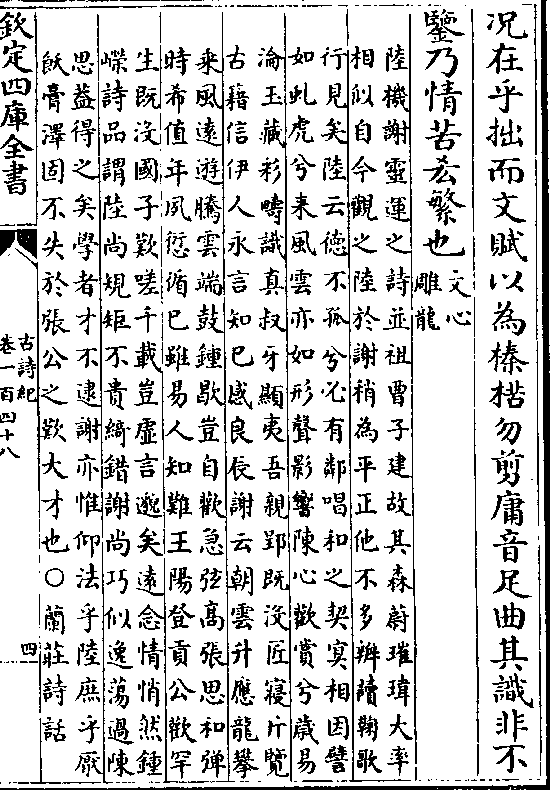 況在乎拙而文賦以為榛楛勿剪庸音足曲其識非不
鑒乃情苦芟繁也
文心
雕龍
陸機謝靈運之詩並祖曹子建故其森蔚璀瑋大率
相似自今觀之陸於謝稍為平正他不多辨讀鞠歌
行見矣陸云德不孤兮必有鄰唱和之契冥相因譬
如虬虎兮来風雲亦如形聲影響陳心歡賞兮歲易
淪玉藏彩疇識真叔牙顯夷吾親郢既没匠寢斤覽
古籍信伊人永言知已感良辰謝云朝雲升應龍攀
乗風遠遊騰雲端鼓鍾歇豈自歡急弦高張思和彈
時希值年夙愆循已雖易人知難王陽登貢公歡罕
生既没國子歎嗟千載豈虛言邈矣遠念情悄然鍾
嶸詩品謂陸尚規矩不貴綺錯謝尚巧似逸蕩過陳
思益得之矣學者才不逮謝亦惟仰法乎陸庶乎厭
飫膏澤固不失於張公之歎大才也○蘭莊詩話
欽定四庫全書
古詩紀
卷一百四十八
四